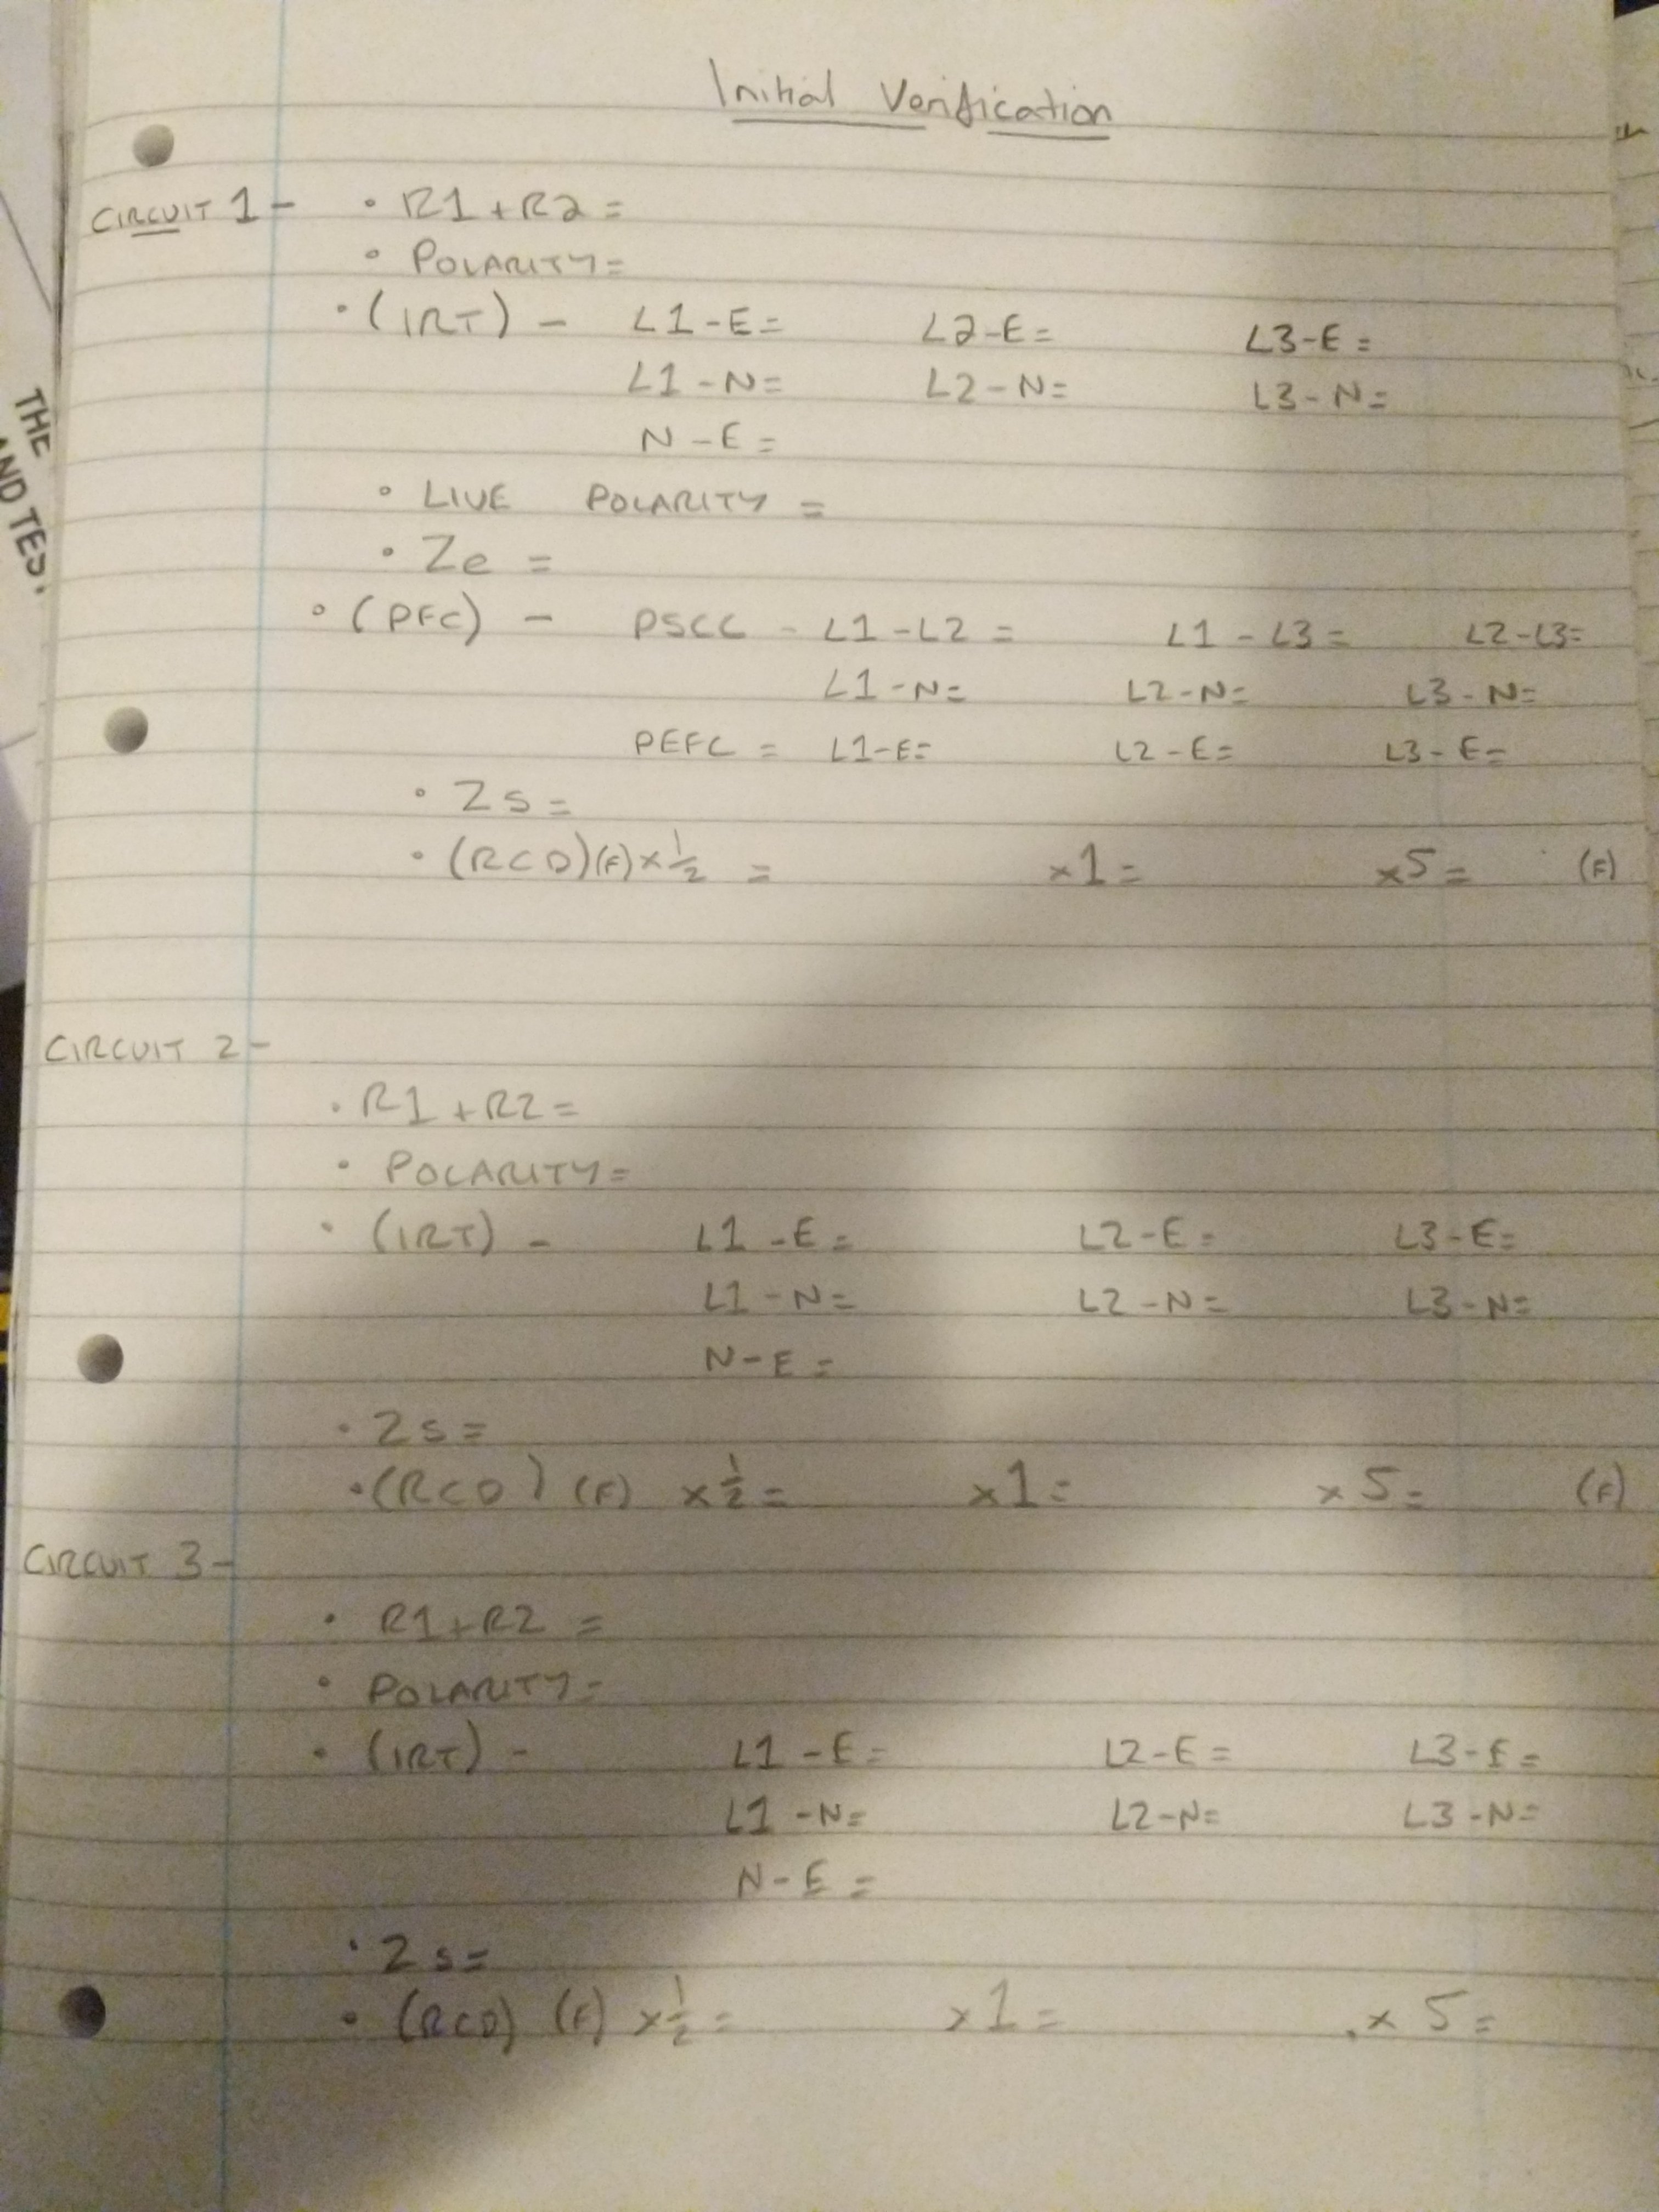 Initial Verification
CIRCUIT 1 - • R1 + R2 =
• POLARITY =
• (IRT) - L1 - E = L2 - E = L3 - E =
L1 - N = L2 - N = L3 - N =
N - E =
• LIVE POLARITY =
• Ze =
• (PFC) - PSCC - L1 - L2 = L1 - L3 = L2 - L3 =
L1 - N = L2 - N = L3 - N =
PEFC = L1 - E = L2 - E = L3 - E =
• Zs =
• (RCD) (F) x ½ = x1 = x5 = (F)
CIRCUIT 2 -
• R1 + R2 =
• POLARITY =
• (IRT) - L1 - E = L2 - E = L3 - E =
L1 - N = L2 - N = L3 - N =
N - E =
• Zs =
• (RCD) (F) x ½ = x1 = x 5 = (F)
CIRCUIT 3 -
• R1 + R2 =
• POLARITY =
• (IRT) - L1 - E = L2 - E = L3 - E =
L1 - N = L2 - N = L3 - N =
N - E =
• Zs =
• (RCD) (F) x ½ = x1 = x 5 =
THE
AND TES